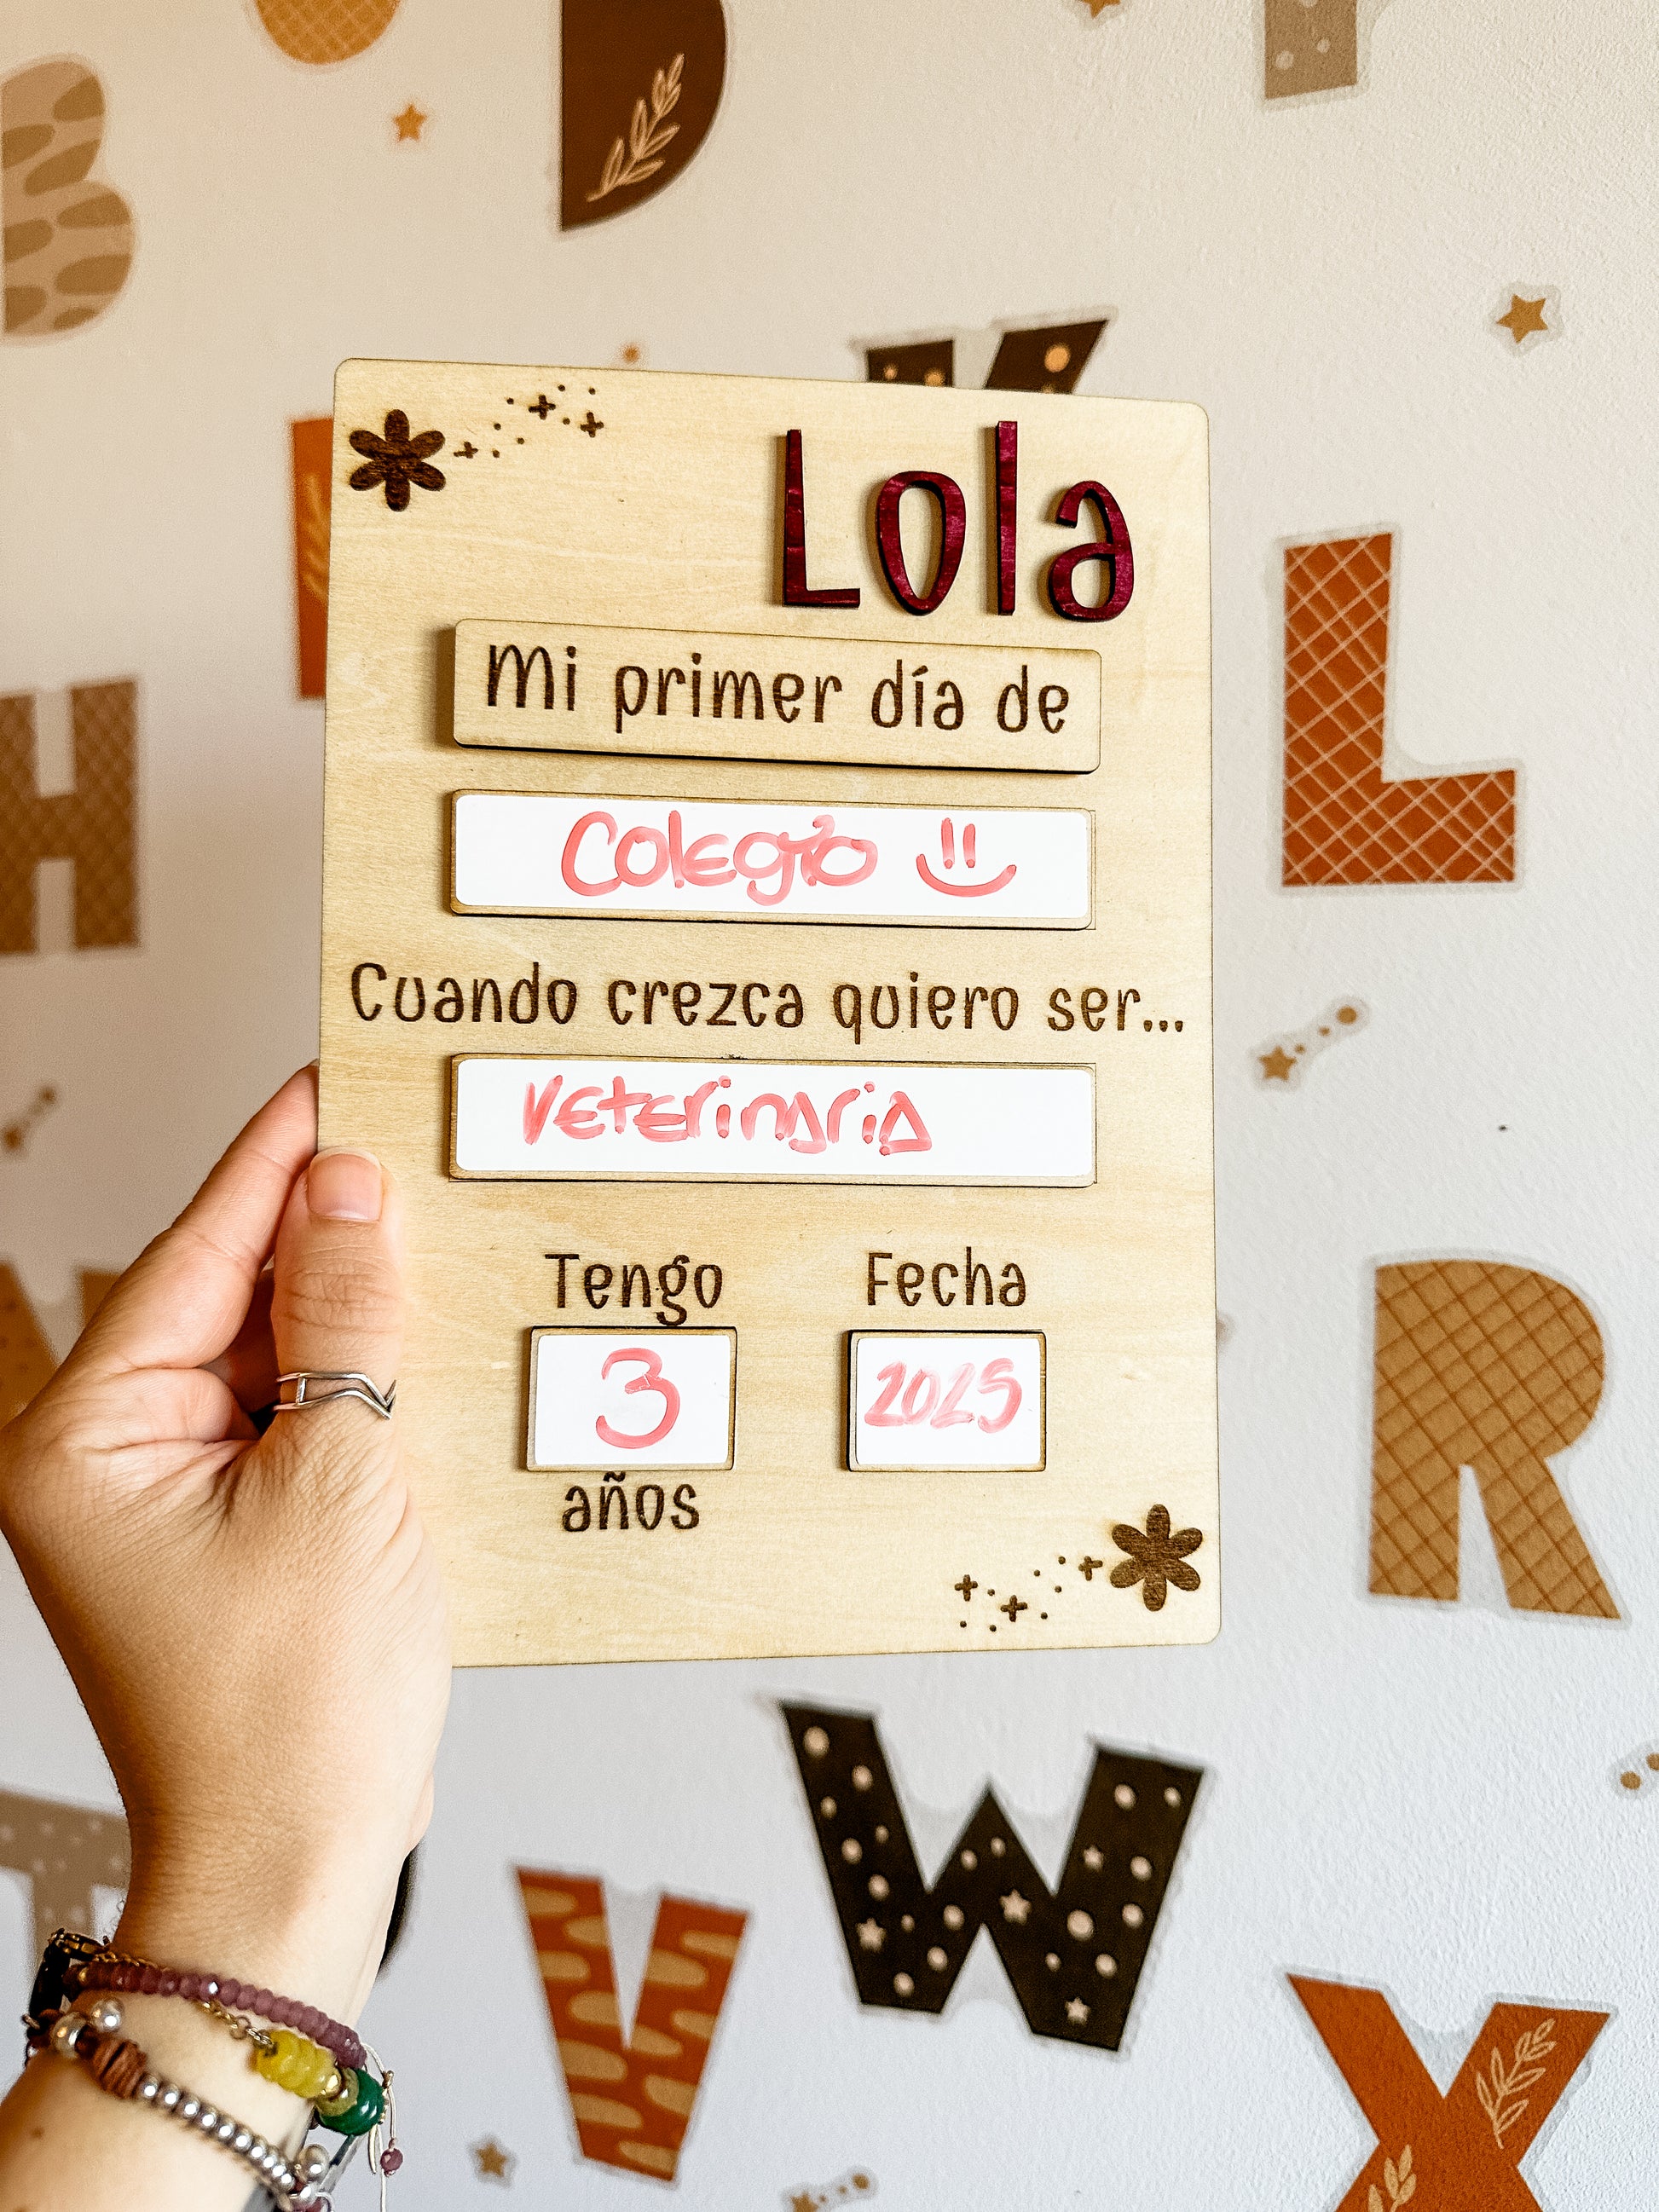 Lola
Mi primer día de
Colegio
Cuando crezca quiero ser...
Veterinaria
Tengo Fecha
3 2025
años
B
D
K
H
L
R
W
V
X